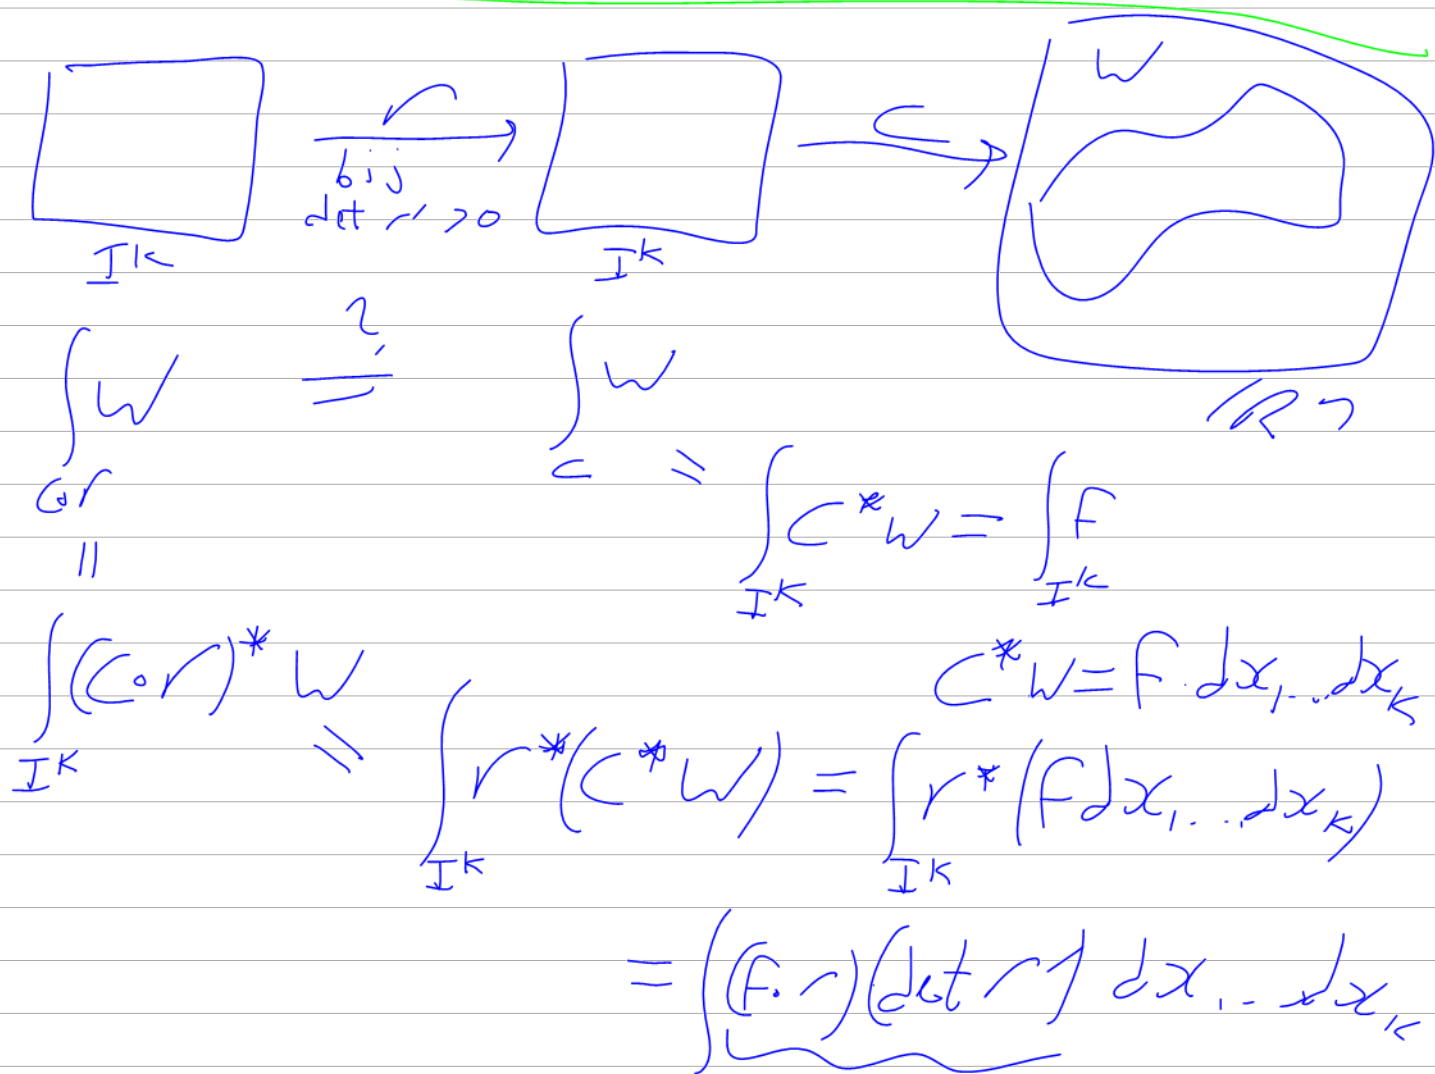 r c ω
bij
det r' > 0
I^k I^k
ℝ^n
∫_{c∘r} ω ?= ∫_c ω = ∫_{I^k} c*ω = ∫_{I^k} F
||
c*ω = F·dx_1...dx_k
∫_{I^k} (c∘r)* ω = ∫_{I^k} r*(c*ω) = ∫_{I^k} r*(Fdx_1...dx_k)
= ∫ (F∘r)(det r') dx_1...dx_k